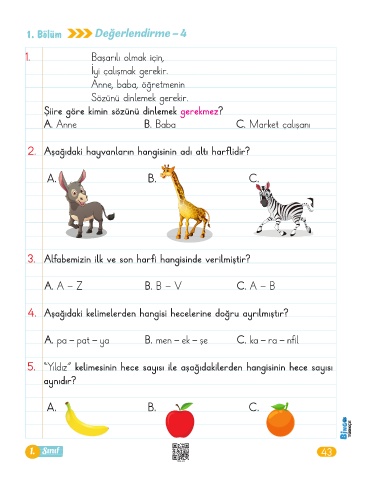 1. Bölüm Değerlendirme – 4
1. Başarılı olmak için,
İyi çalışmak gerekir.
Anne, baba, öğretmenin
Sözünü dinlemek gerekir.
Şiire göre kimin sözünü dinlemek gerekmez?
A. Anne B. Baba C. Market çalışanı
2. Aşağıdaki hayvanların hangisinin adı altı harflidir?
A. B. C.
3. Alfabemizin ilk ve son harfi hangisinde verilmiştir?
A. A – Z B. B – V C. A – B
4. Aşağıdaki kelimelerden hangisi hecelerine doğru ayrılmıştır?
A. pa – pat – ya B. men – ek – şe C. ka – ra – nfil
5. "Yıldız" kelimesinin hece sayısı ile aşağıdakilerden hangisinin hece sayısı
aynıdır?
A. B. C.
BİNGO
TÜRKÇE
1. Sınıf 43